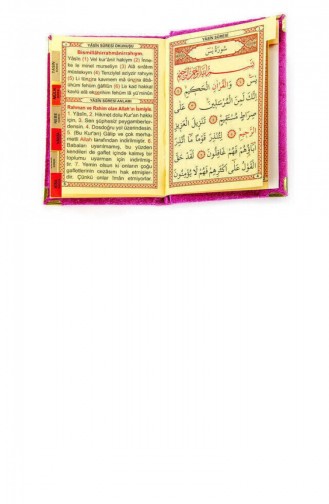 YÂSİN SÛRESİ OKUNUŞU
Bismillâhirrahmânirrahîym.
Yâsîn. (1) Vel kur'ânil hakiym (2) İnne-
ke le minel murseliyn (3) Alâ sırâtım
müstekıym (4) Tenziylel aziyzir rahıym
(5) Li tünzira kavmen mâ ünzira âbâ-
ühüm fehüm ğâfilûn (6) Le kad hakkal
kavlü alâ ekserihim fehüm lâ yü'minûn
YÂSİN SÛRESİ ANLAMI
Rahman ve Rahim olan Allah'ın ismiyle.
1. Yâsîn. 2. Hikmet dolu Kur'an hakkı
için, 3. Sen şüphesiz peygamberler-
densin. 4. Dosdoğru yol üzerindesin.
5. (Bu Kur'an) Galip ve çok merha-
metli Allah tarafından indirilmiştir. 6.
Babaları uyarılmamış, bu yüzden
kendileri de gaflet içinde kalmış bir
toplumu uyarman için indirilmiş-
tir. 7. Yemin olsun ki onların çoğu
gafletlerinin cezasını hak etmişler-
dir. Çünkü onlar îmân etmiyorlar.
YÂSİN SÛRESİ
سُورَةُ يٰسٓ
يٰسٓ ۞ وَالْقُرْاٰنِ الْحَكٖيمِ ۞
اِنَّكَ لَمِنَ الْمُرْسَلٖينَ ۞ عَلٰى
صِرَاطٍ مُسْتَقٖيمٍ ۞ تَنْزٖيلَ الْعَزٖيزِ
الرَّحٖيمِ ۞ لِتُنْذِرَ قَوْمًا مَٓا اُنْذِرَ
اٰبَٓاؤُهُمْ فَهُمْ غَافِلُونَ ۞ لَقَدْ حَقَّ
الْقَوْلُ عَلٰٓى اَكْثَرِهِمْ فَهُمْ لَا يُؤْمِنُونَ